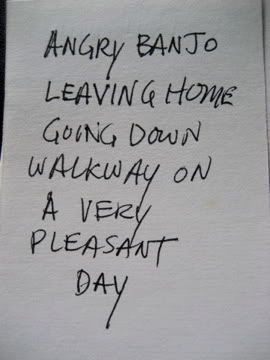 ANGRY BANJO
LEAVING HOME
GOING DOWN
WALKWAY ON
A VERY
PLEASANT
DAY